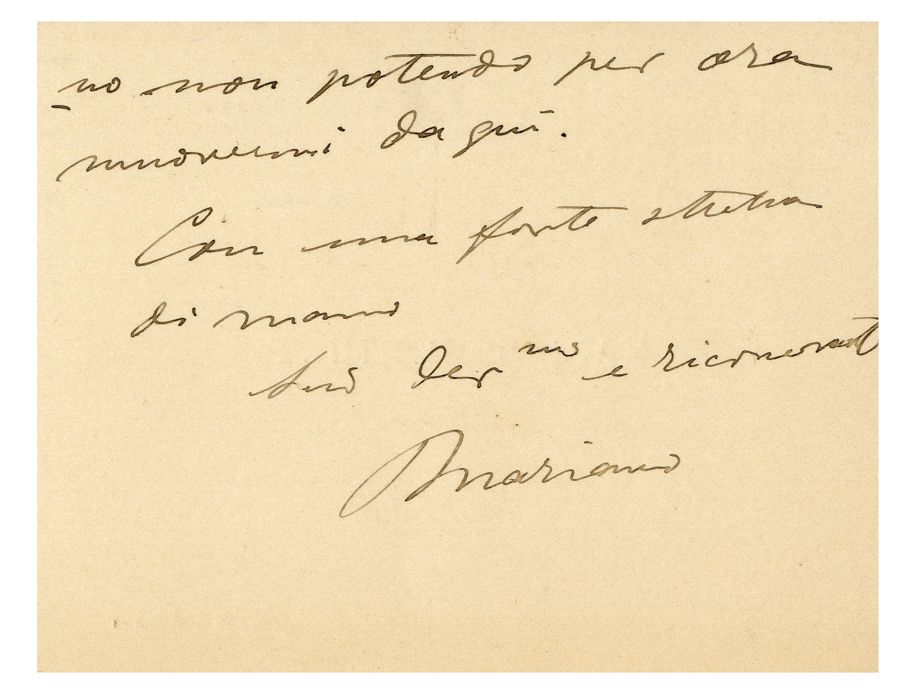 no non potendo per ora
muovermi da qui.
Con una forte stretta
di mano
Suo dev mo e riconoscent